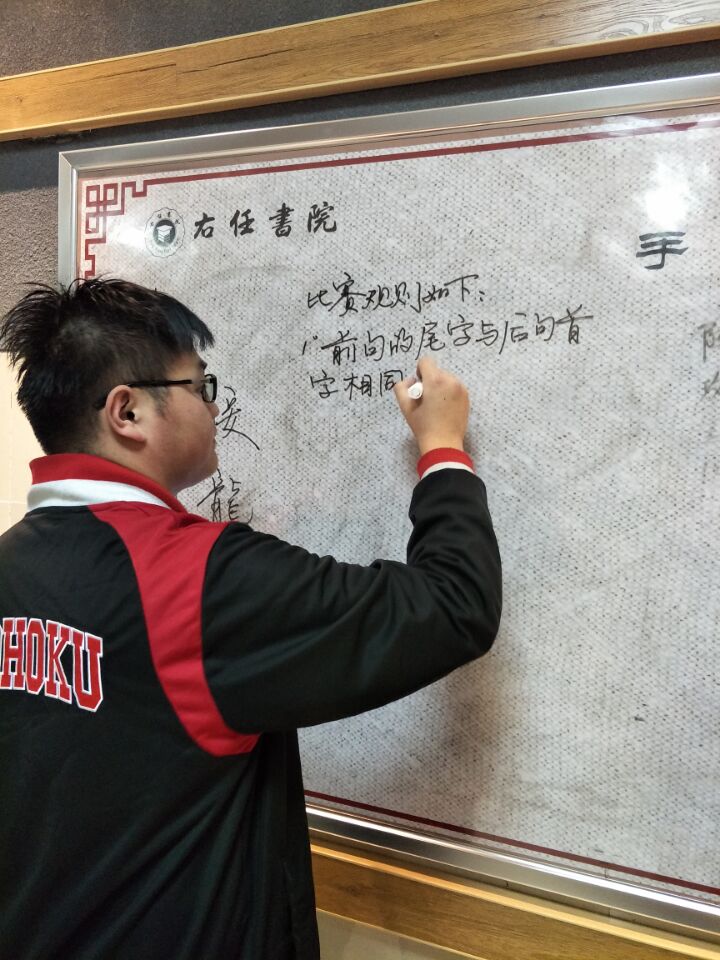 右任書院
手
比赛规则如下：
1° 前句的尾字与后句首
字相同
龍
HOKU